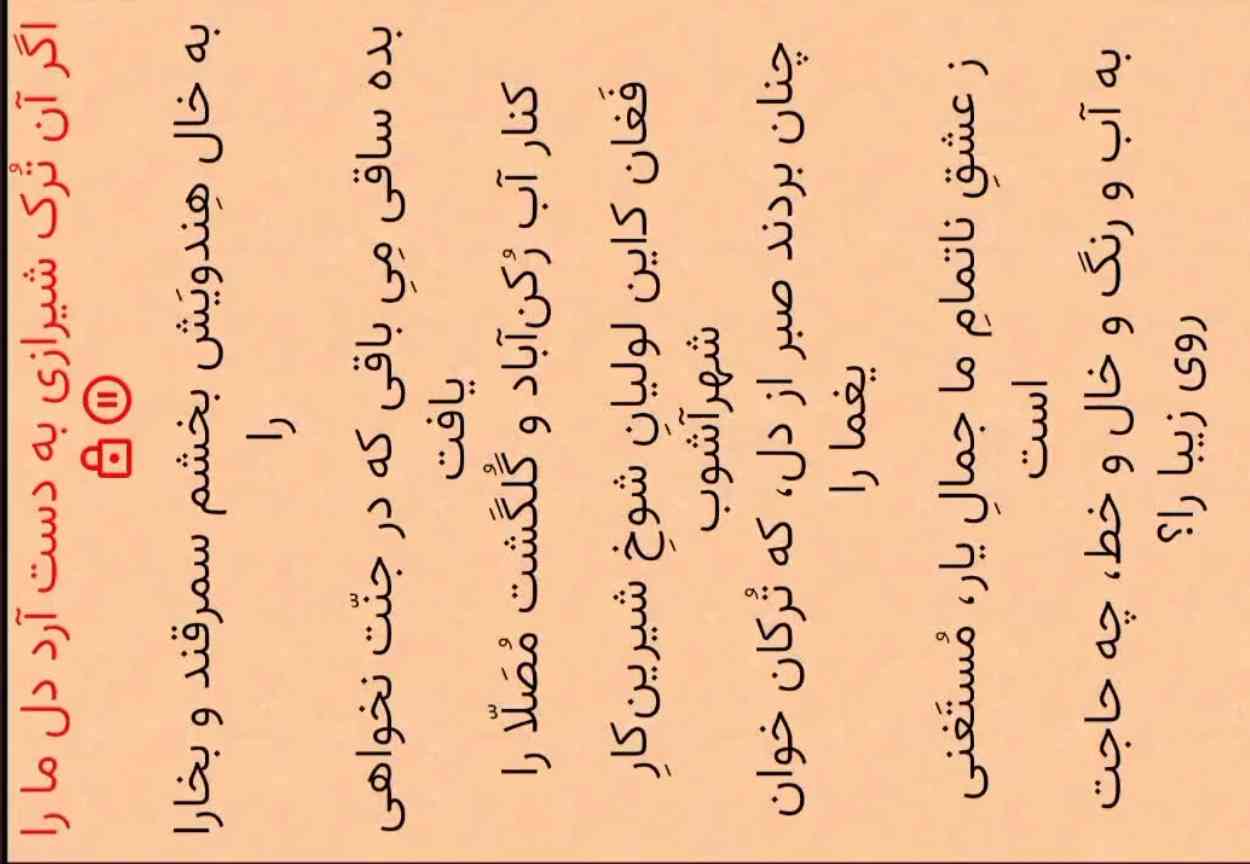 اگر آن تُرک شیرازی به دست آرد دل ما را
به خال هِندویَش بخشم سمرقند و بخارا
را
بده ساقی مِیِ باقی که در جنّت نخواهی
یافت
کنار آب رُکن‌آباد و گُلگَشت مُصَلّا را
فَغان کاین لولیانِ شوخِ شیرین‌کارِ
شهرآشوب
چنان بردند صبر از دل، که تُرکان خوان
یغما را
ز عشقِ ناتمامِ ما جمالِ یار، مُستَغنی
است
به آب و رنگ و خال و خط، چه حاجت
روی زیبا را؟